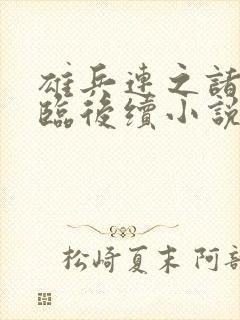 雄兵連之諸
臨後續小說
松崎夏末 阿部